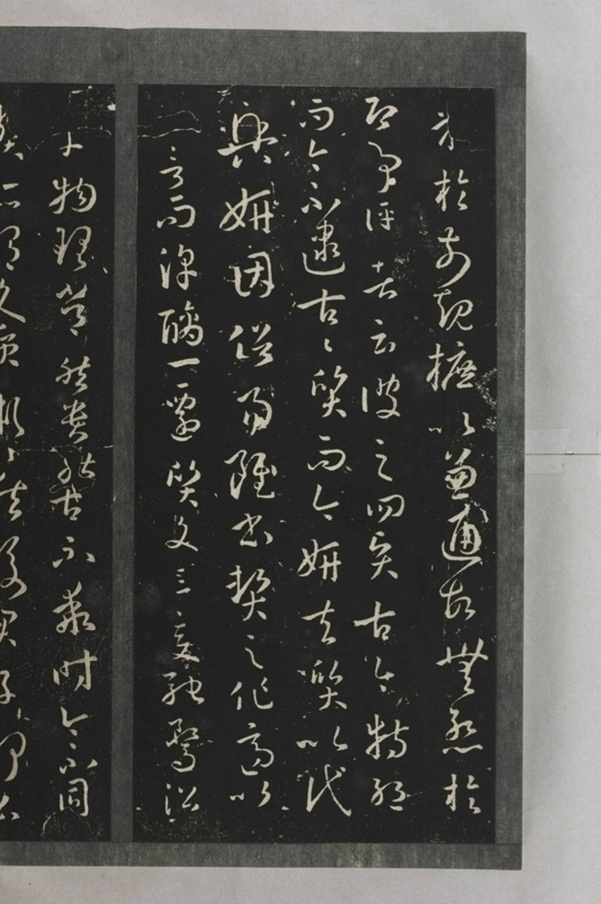 果於前規摭以兼通故無慙於
即事評者云彼之四賢古今特絕
而今不逮古〻質而今妍夫質以代
興妍因俗易雖書契之作適以
記言而淳醨一遷質文三變馳騖沿
革物理常然貴能古不乖時今不同
弊所謂文質彬〻然後君子何必